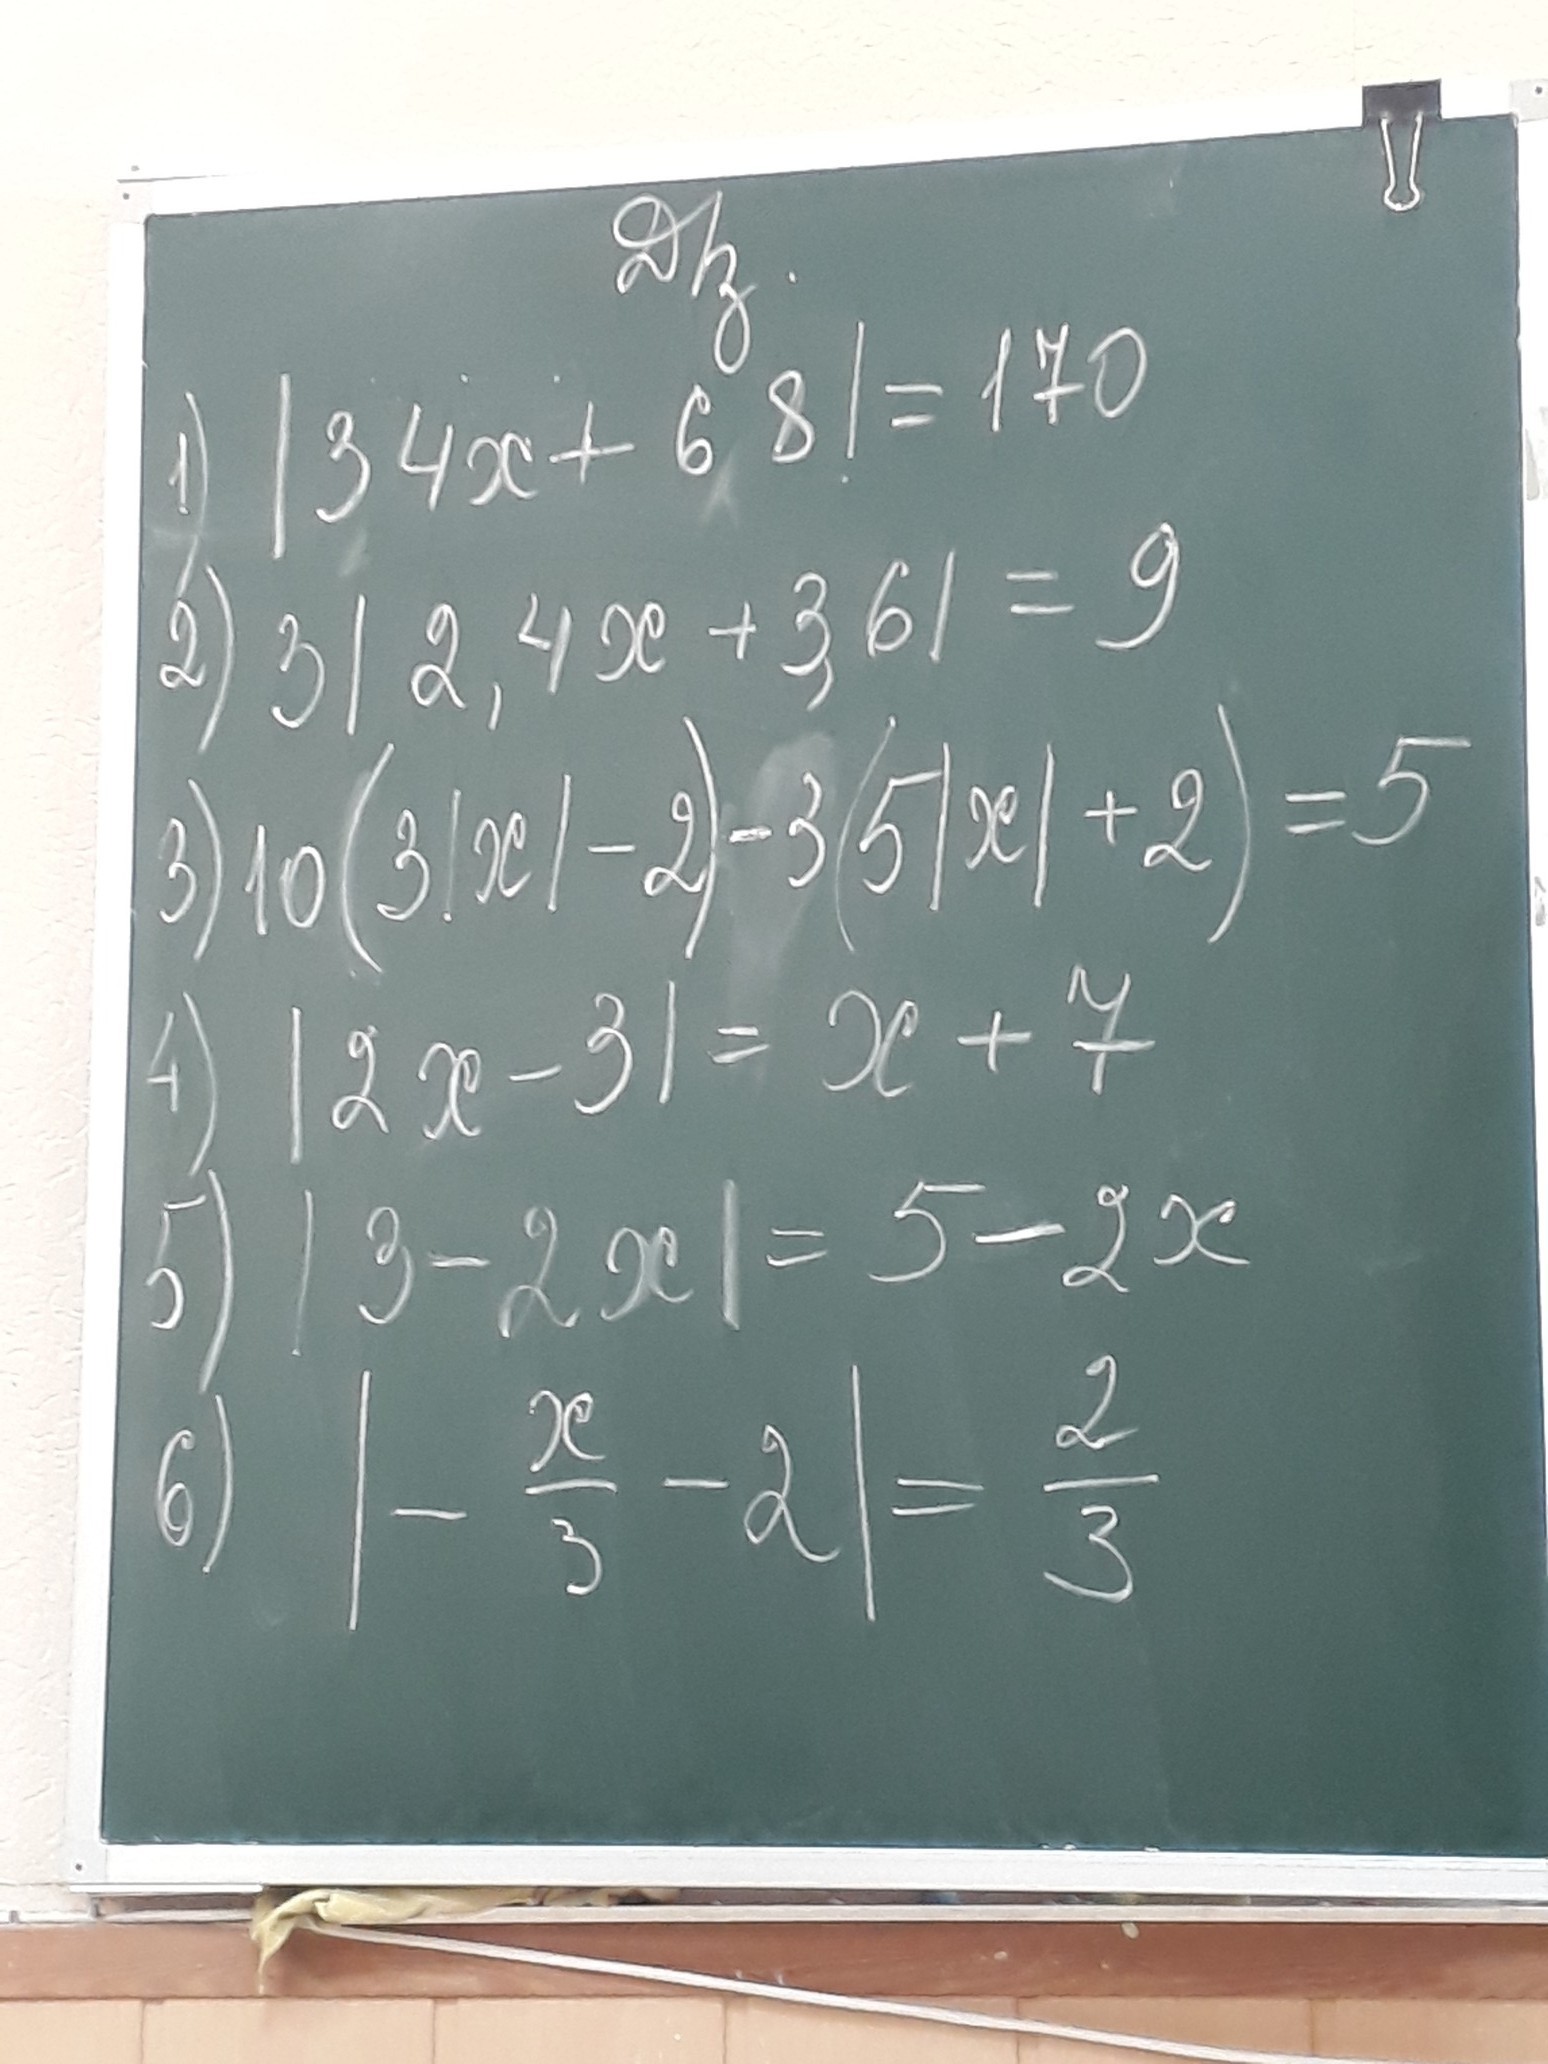 Dz.
1) |34x + 68| = 170
2) 3|2,4x + 3,6| = 9
3) 10(3|x| - 2) - 3(5|x| + 2) = 5
4) |2x - 3| = x + 7
5) |3 - 2x| = 5 - 2x
6) |- x/3 - 2| = 2/3